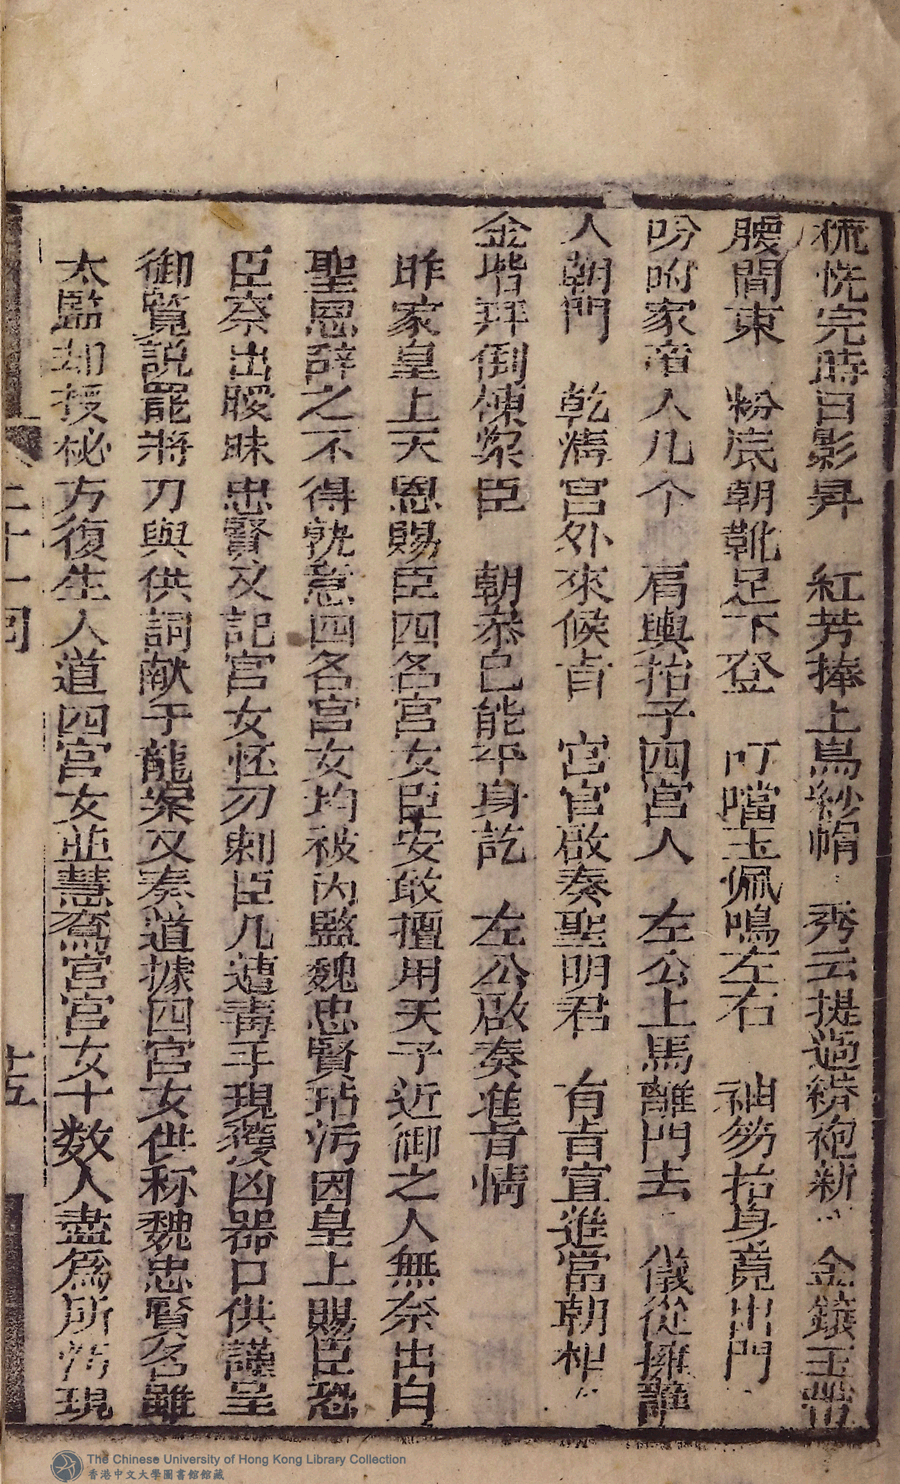 梳洗完時日影昇　紅芳捧上烏紗帽　秀云提過蟒袍新　金鑲玉帶
腰間束　粉底朝靴足下登　叮噹玉佩鳴左右　袖笏抬身竟出門
吩咐家帝人几个　肩輿抬子四宮人　左公上馬離門去　儀從擁護
人朝門　乾清宮外來候㫖　宮官啟奏聖明君　有㫖宣進當朝相
金堦拜倒棟梁臣　朝恭已能平身訖　左公啟奏准㫖情
昨家皇上天恩賜臣四名宮女臣安敢擅用天子近御之人無奈出白
聖恩辞之不得孰意四名宮女均被內監魏忠賢玷污因皇上賜臣恐
臣察出曖昧忠賢又記宮女怌刃刺臣几遭毒手現獲凶器口供謹呈
御覧説罷將刀與供詞献于龍案又奏道據四宮女供称魏忠賢名雖
太監却授秘方復生人道四宮女並慧鴛宮宮女十数人盡為所污現
二十一囘
十五
The Chinese University of Hong Kong Library Collection
香港中文大學圖書館館藏